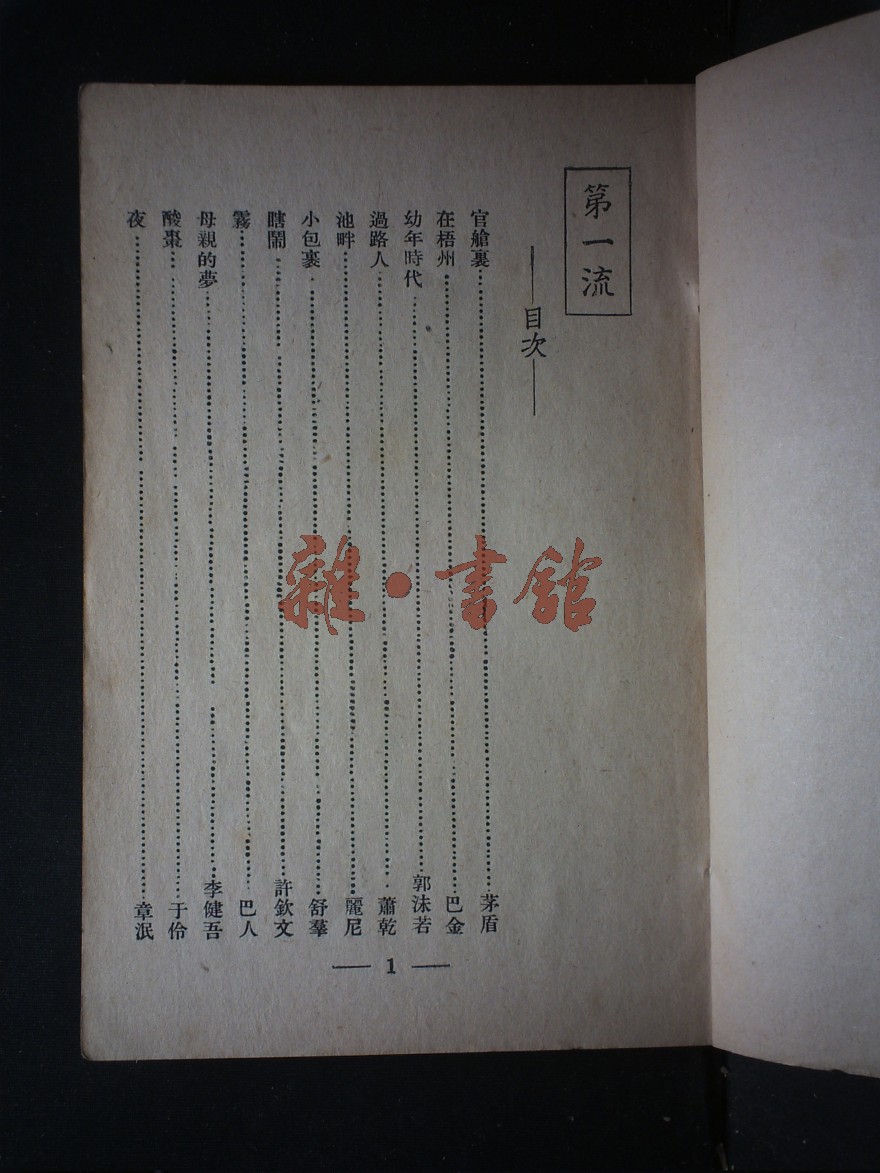 第一流
——目次——
官艙裏……茅盾
在梧州……巴金
幼年時代……郭沫若
過路人……蕭乾
池畔……麗尼
小包裹……舒羣
瞎鬧……許欽文
霧……巴人
母親的夢……李健吾
酸棗……于伶
夜……章泯
— 1 —
雜·書館